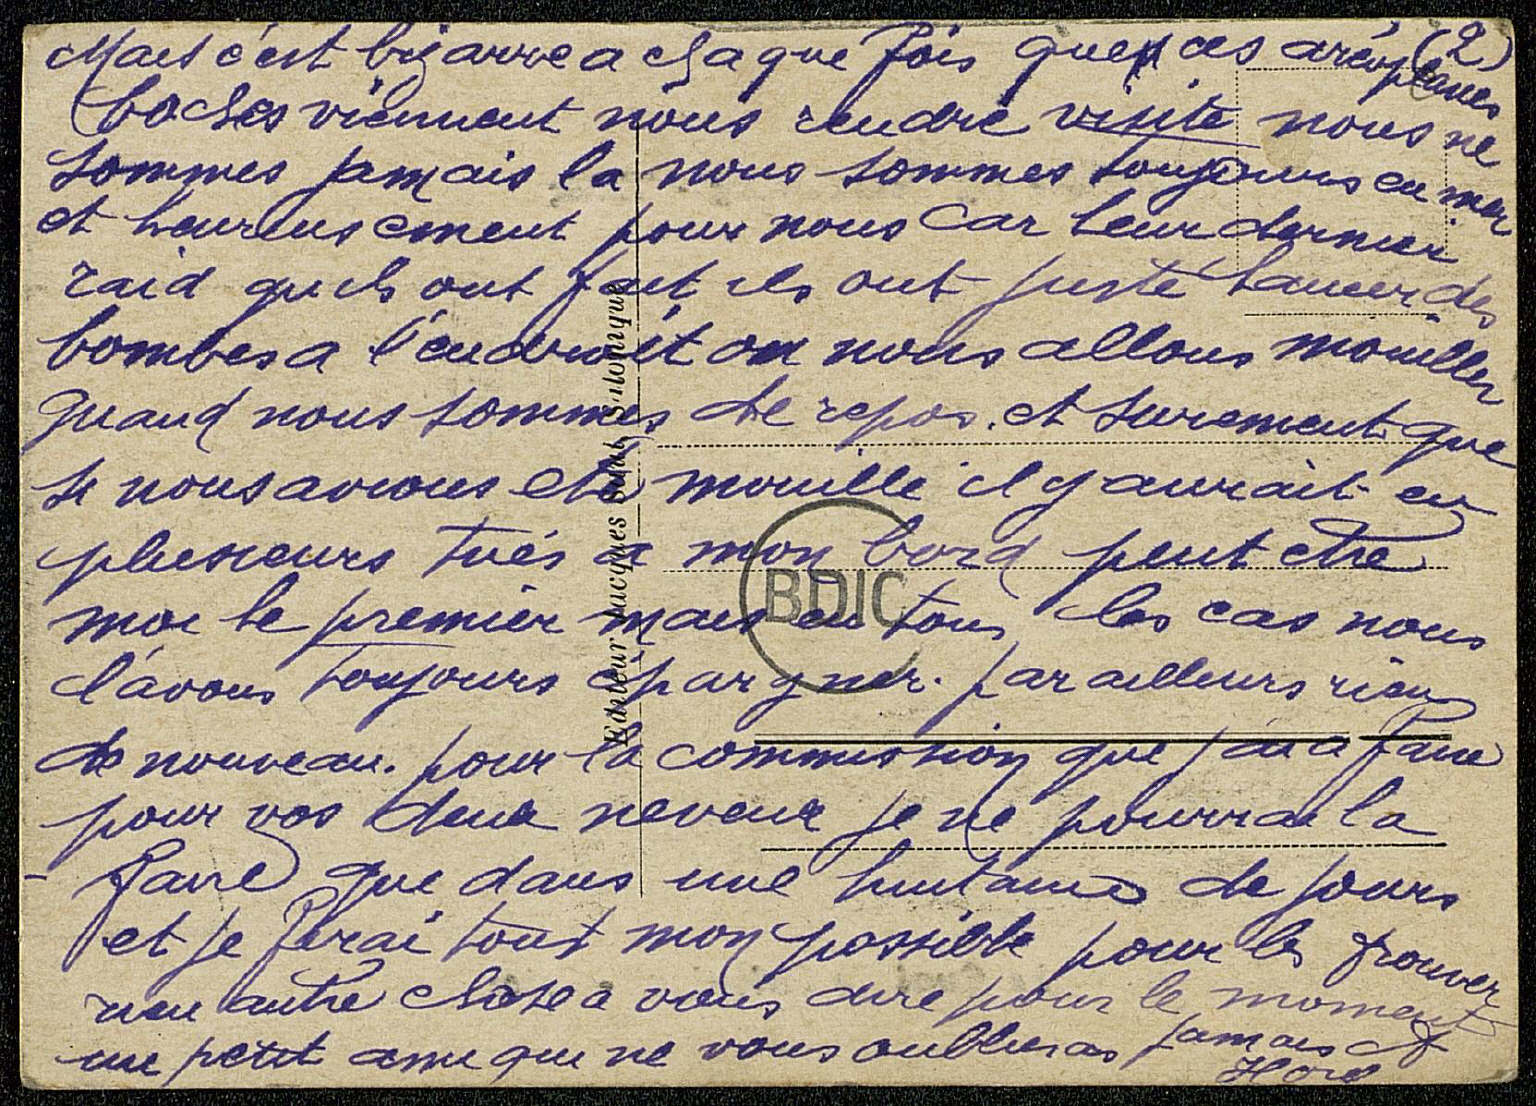 (2)
Mais c'est bizarre a chaque fois que ces aréoplanes
boches viennent nous rendre visite nous ne
sommes jamais la nous sommes toujours en mer
et heureusement pour nous car leur dernier
raid qu'ils ont fait ils ont juste lancer des
bombes a l'endroit ou nous allons mouiller
quand nous sommes de repos. et surement que
si nous avions été mouillé il y aurait eu
plusieurs tués a mon bord peut etre
moi le premier mais en tous les cas nous
l'avons toujours épargner. par ailleurs rien
de nouveau. pour la commission que j'ai a faire
pour vos deux neveux je ne pourrai la
faire que dans une huitaine de jours
et je ferai tout mon possible pour les trouver
rien autre chose a vous dire pour le moment
un petit ami qui ne vous oublieras jamais
Editeur Jacques Saul, Salonique
BDIC